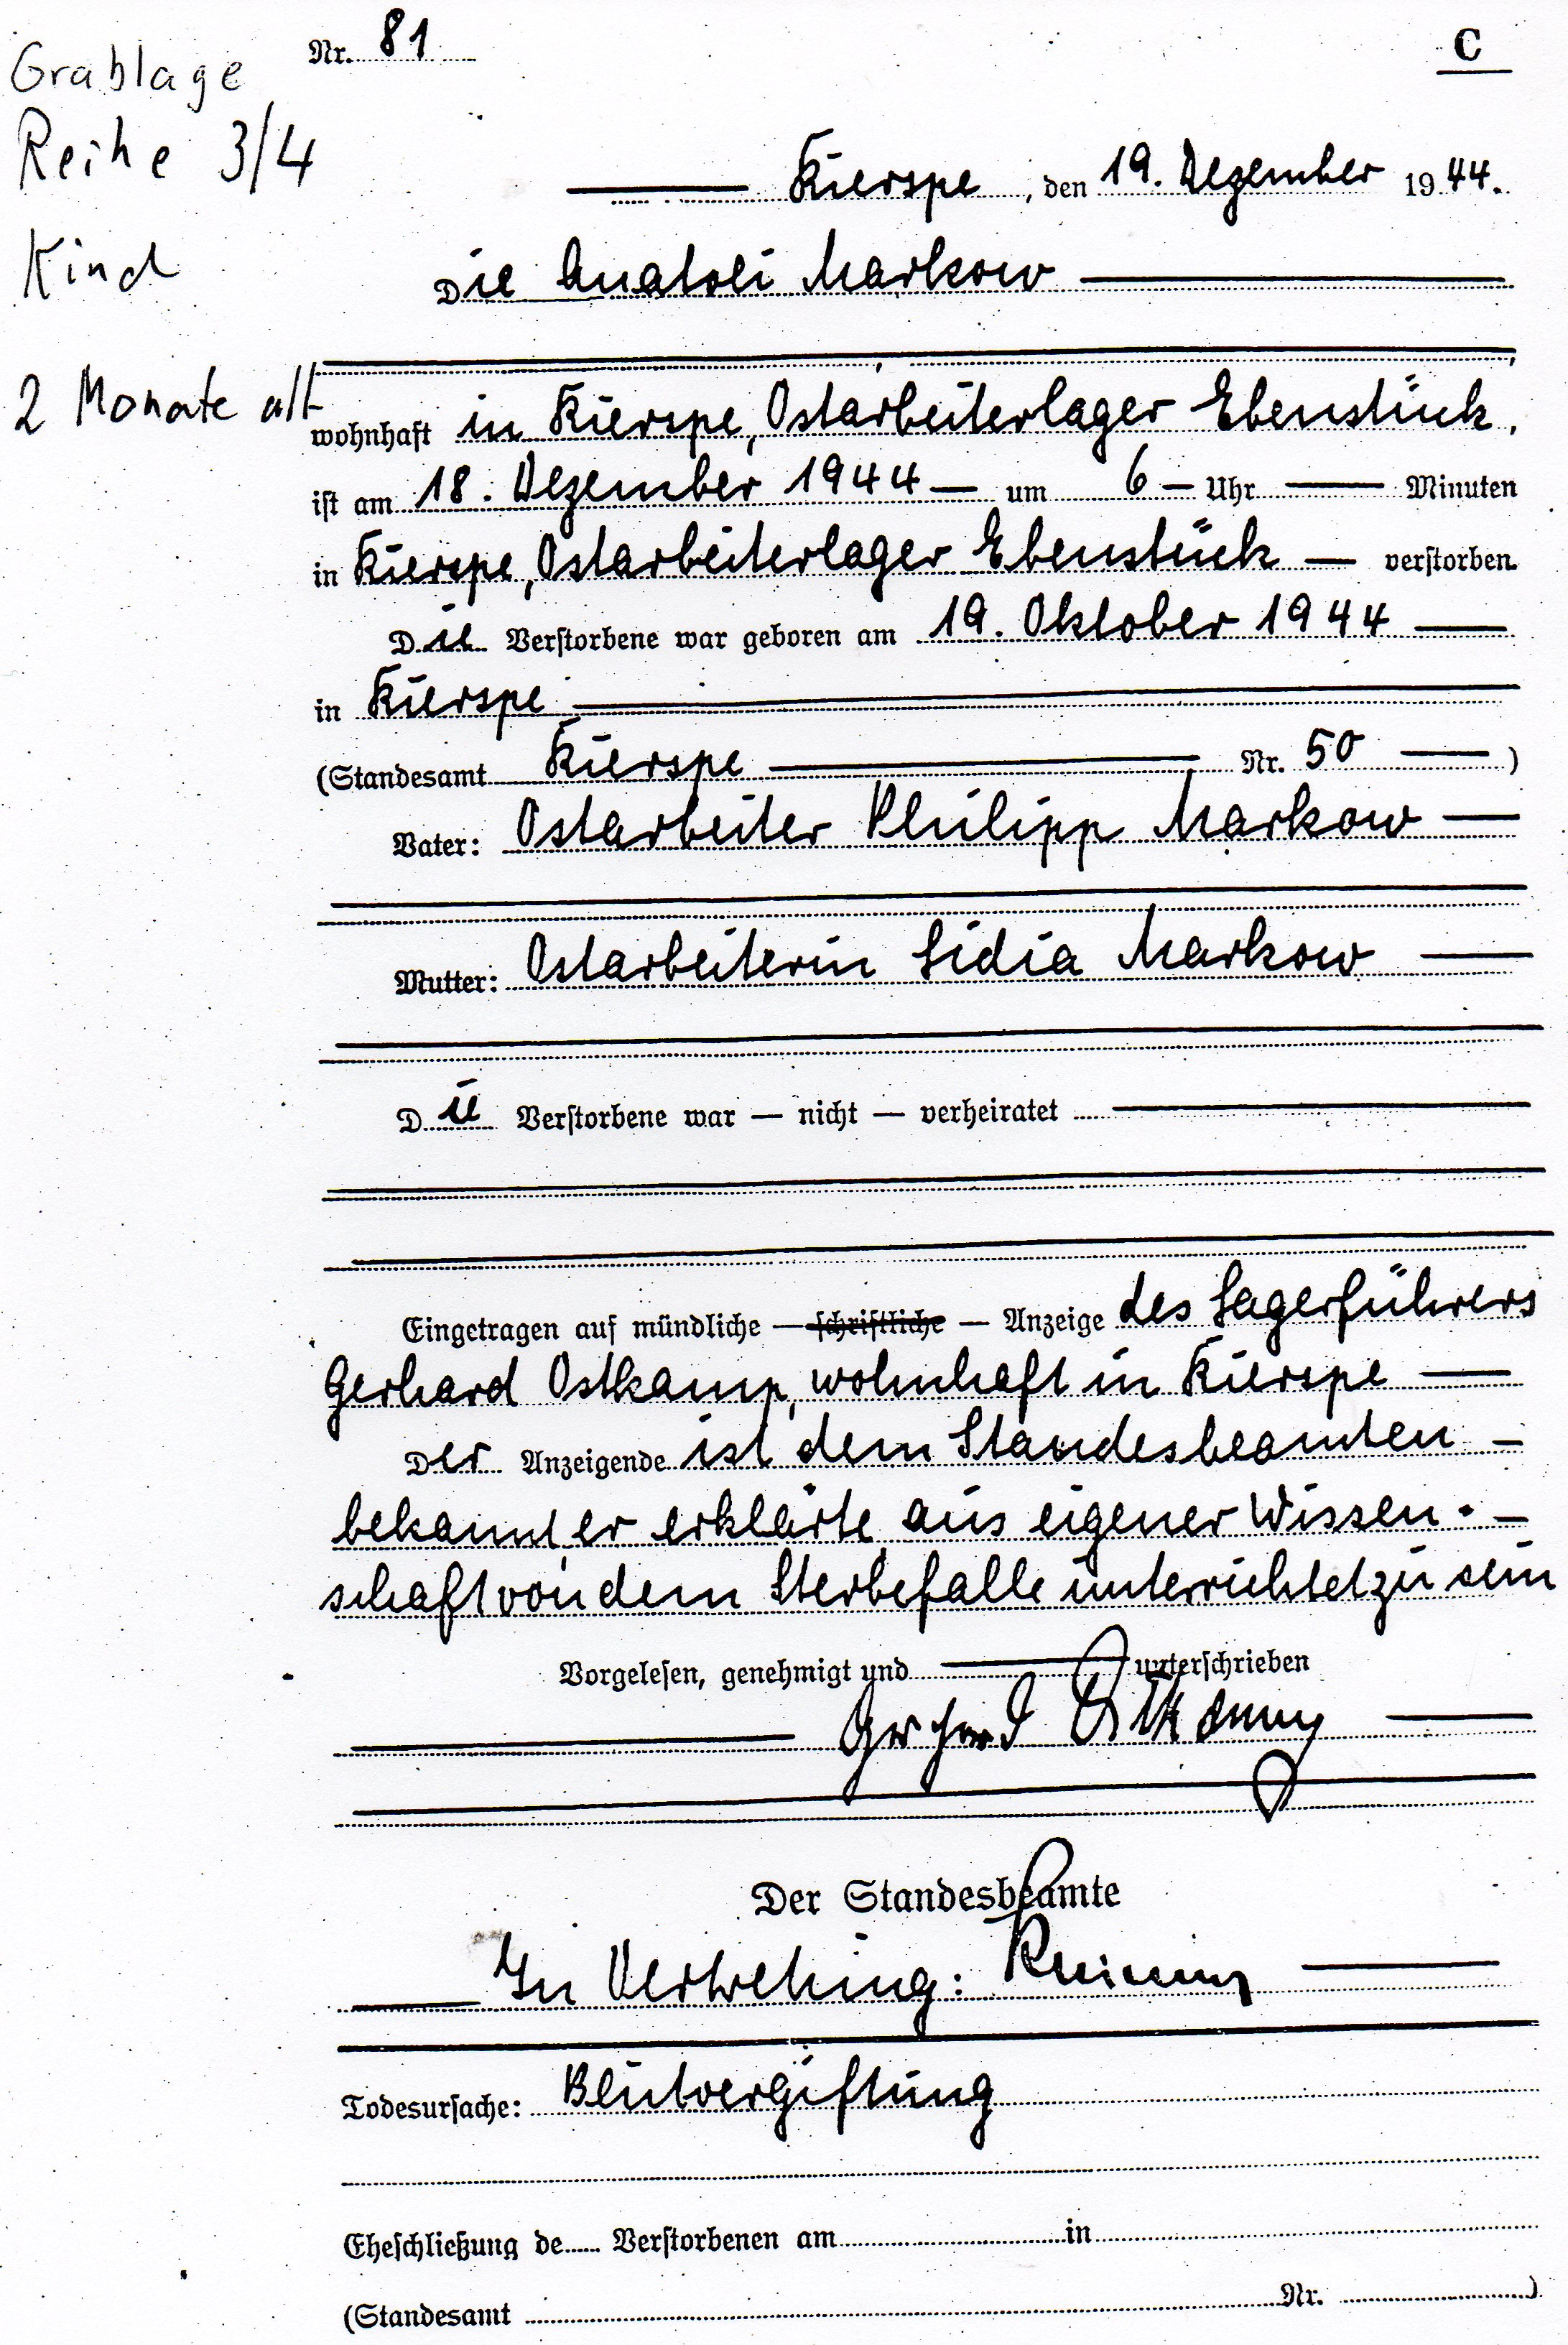 Grablage
Reihe 3/4
Kind
2 Monate alt
Nr. 81
C
Kierspe, den 19. Dezember 1944.
Die Anatoli Markow
wohnhaft in Kierspe, Ostarbeiterlager Ebenstück,
ist am 18. Dezember 1944 — um 6 — Uhr — Minuten
in Kierspe, Ostarbeiterlager Ebenstück — verstorben.
Die Verstorbene war geboren am 19. Oktober 1944 —
in Kierspe
(Standesamt Kierspe — Nr. 50 —)
Vater: Ostarbeiter Philipp Markow —
Mutter: Ostarbeiterin Lidia Markow —
Die Verstorbene war — nicht — verheiratet —
Eingetragen auf mündliche — schriftliche — Anzeige des Lagerführers
Gerhard Ostkamp, wohnhaft in Kierspe —
Der Anzeigende ist dem Standesbeamten —
bekannt, er erklärte, aus eigener Wissen-
schaft von dem Sterbefalle unterrichtet zu sein
Vorgelesen, genehmigt und — unterschrieben
Gerhard Ostkamp
Der Standesbeamte
In Vertretung:
Todesursache: Blutvergiftung
Eheschließung de Verstorbenen am in
(Standesamt Nr. )